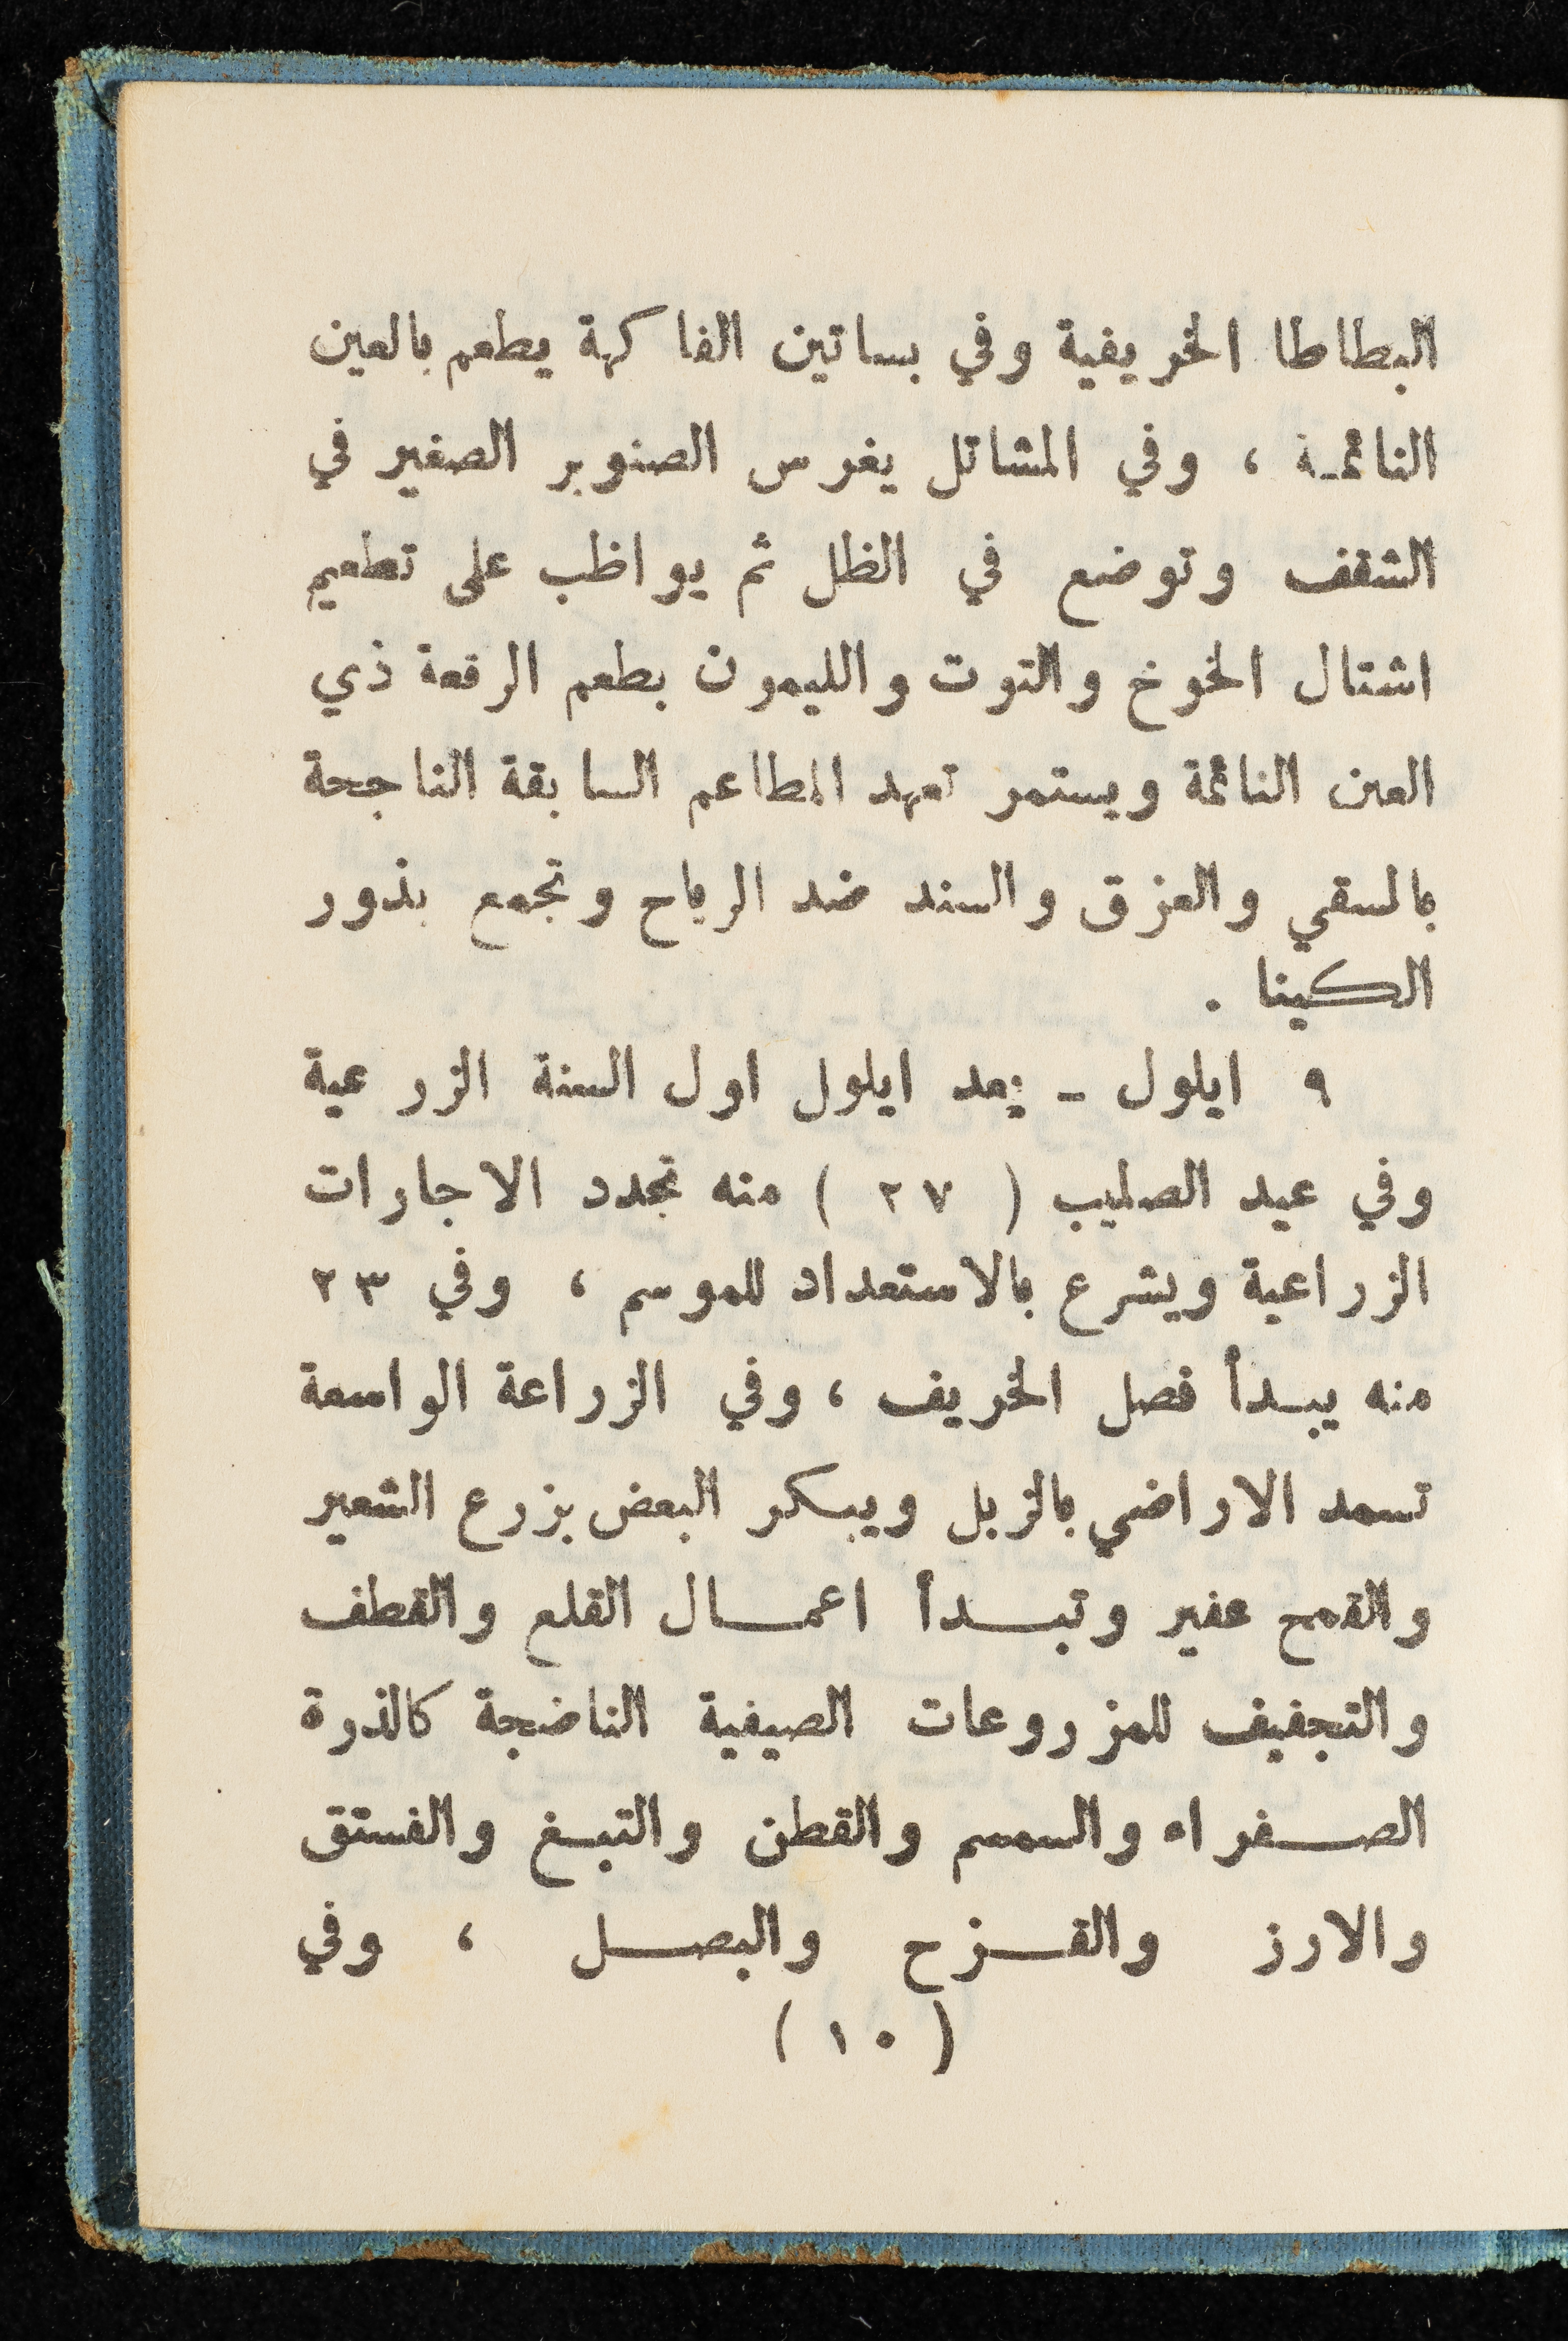 البطاطا الخريفية وفي بساتين الفاكهة يطعم بالعين
النائمـة ، وفي المشاتل يغرس الصنوبر الصغير في
الشقف وتوضع في الظل ثم يواظب على تطعيم
اشتال الخوخ والتوت والليمون بطعم الرقعة ذي
العين النائمة ويستمر تعهد المطاعم السابقة الناجحة
بالسقي والعزق والسند ضد الرياح وتجمع بذور
الكينا .
٩ ايلول ــ يعد ايلول اول السنة الزرعية
وفي عيد الصليب ( ٢٧ ) منه تجدد الاجارات
الزراعية ويشرع بالاستعداد للموسم ، وفي ٢٣
منه يبـدأ فصل الخريف ، وفي الزراعة الواسعة
تسمد الاراضي بالزبل ويبـكر البعض بزرع الشعير
والقمح عفير وتبـــدأ اعمـــال القلع والقطف
والتجفيف للمزروعات الصيفية الناضجة كالذرة
الصـــفراء والسمسم والقطن والتبـــغ والفستق
والارز والقـــزح والبصـــل ، وفي
( ١٠ )